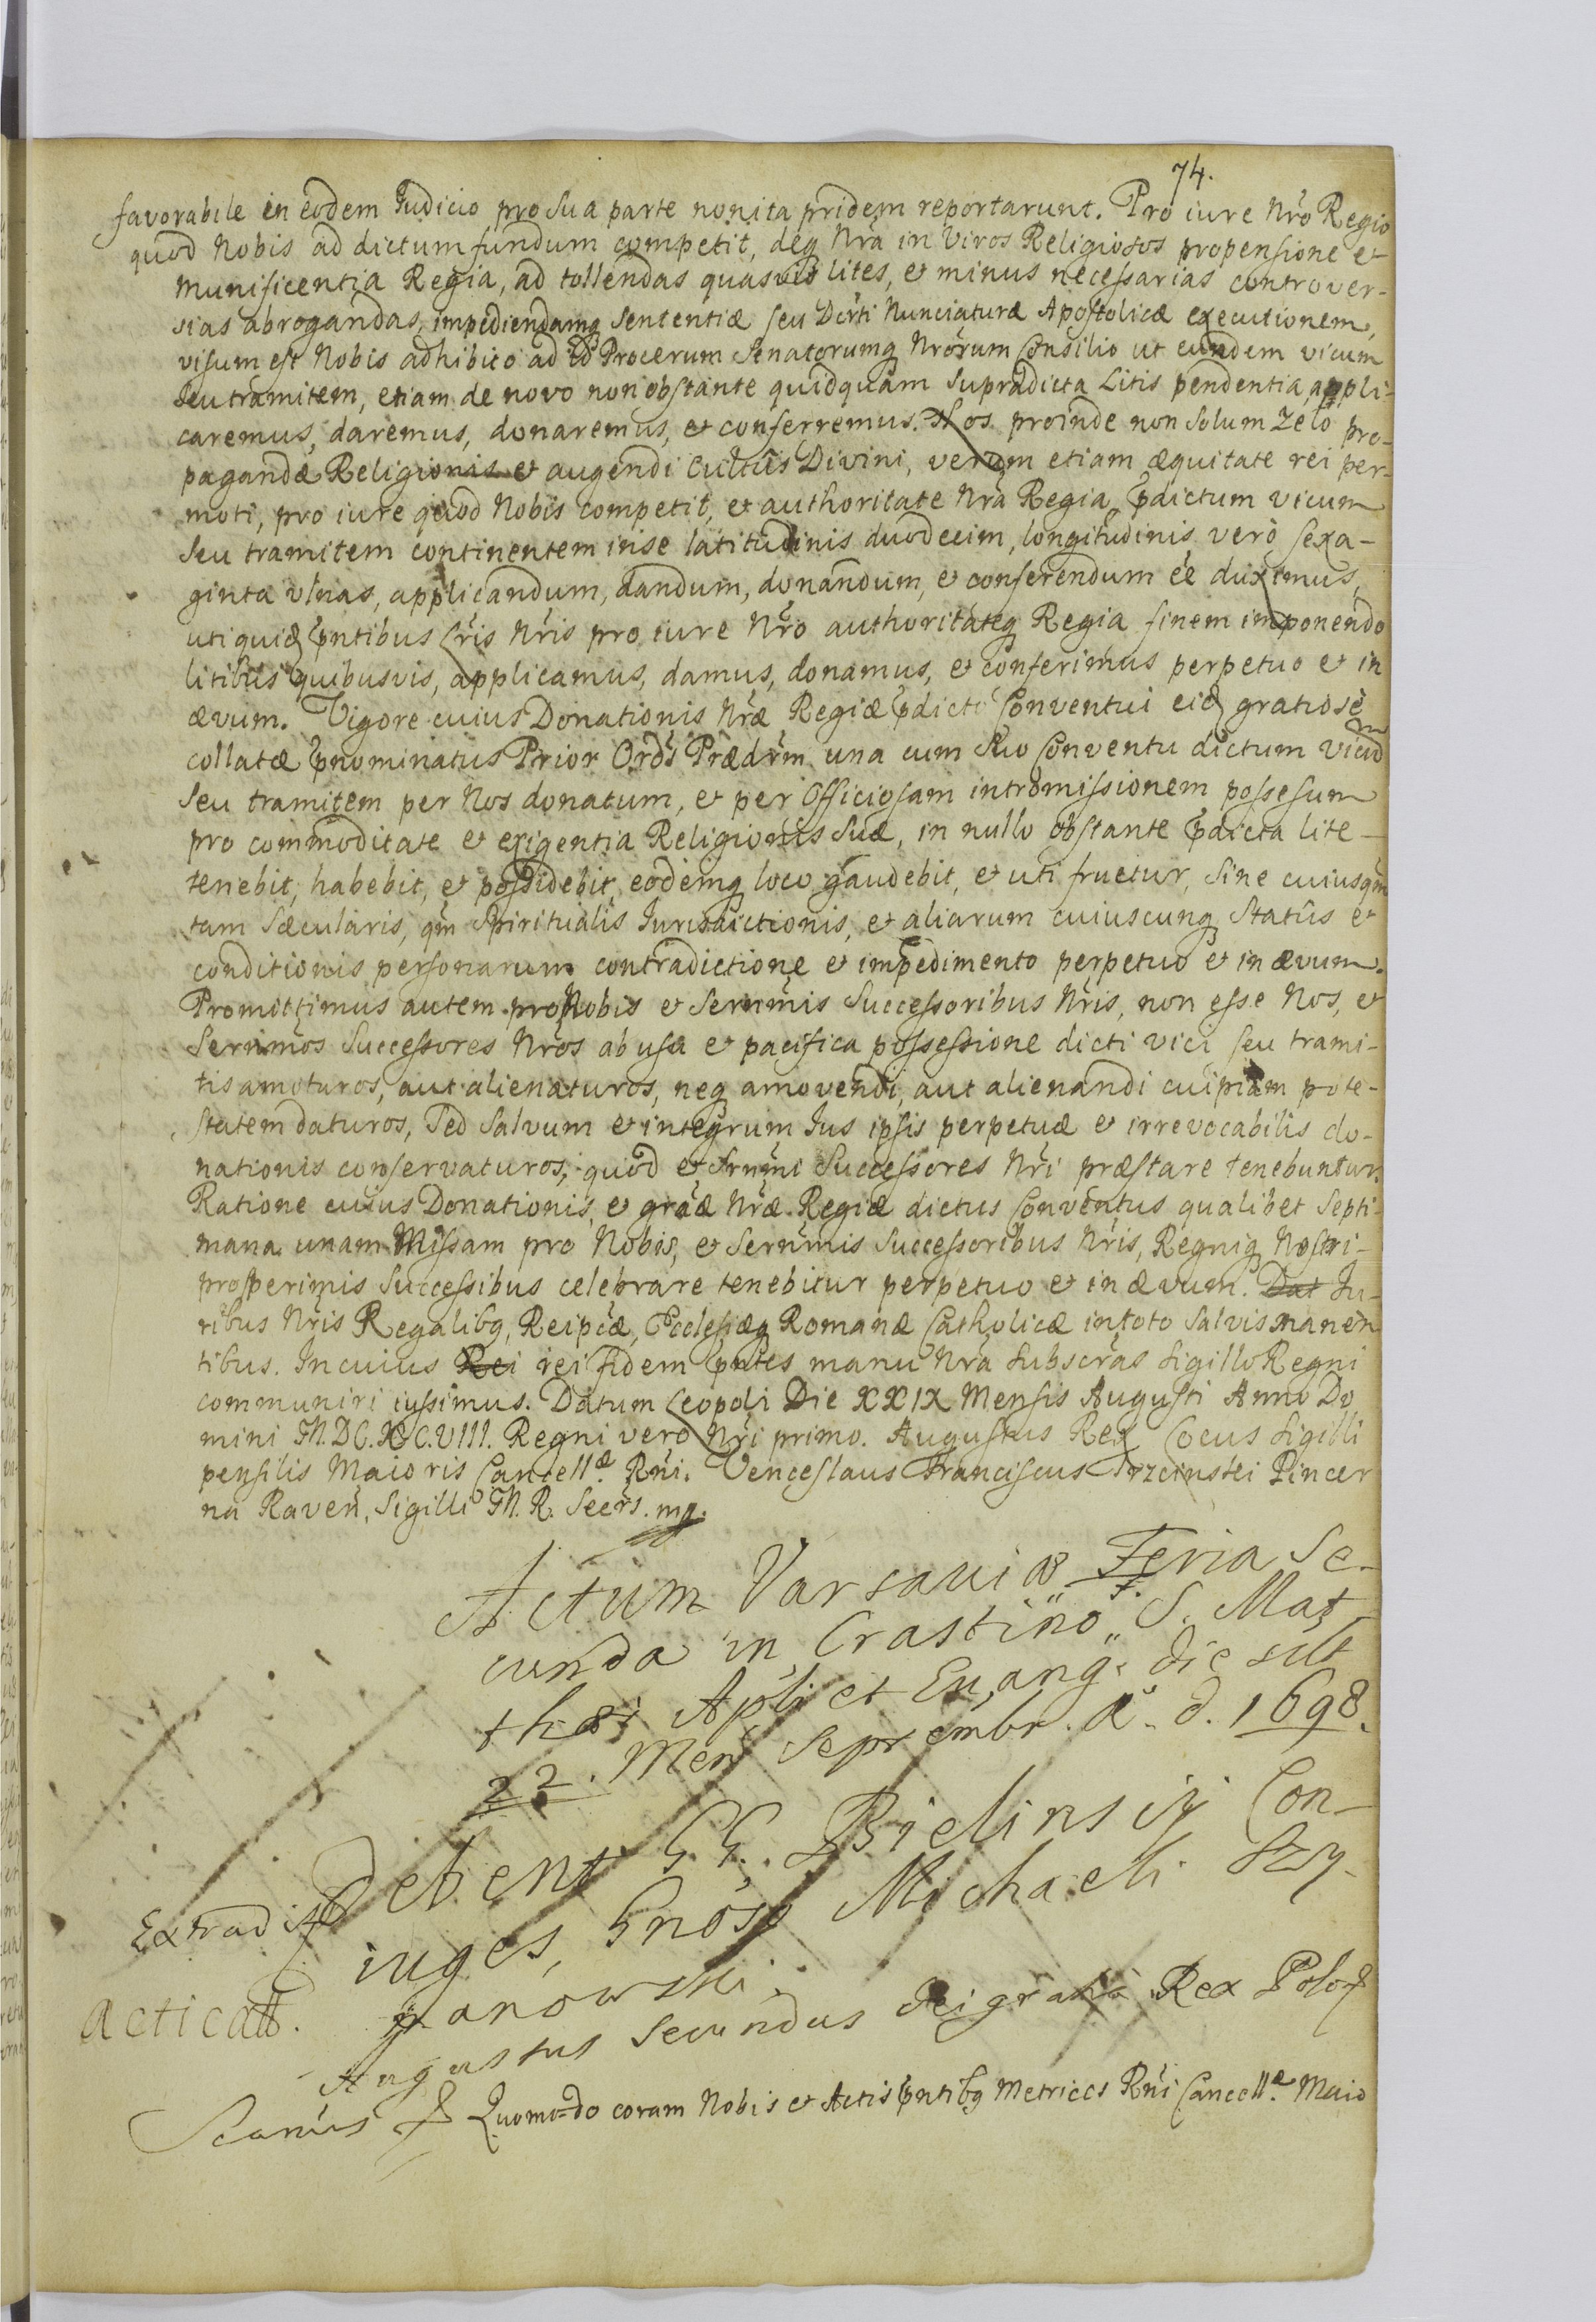 74.
favorabile in eodem Judicio pro sua parte non ita pridem reportarunt. Pro iure Nrõ Regio
quod Nobis ad dictum fundum competit, deq Nrã in Viros Religiosos propensione et
Munificentia Regia, ad tollendas quasvis lites, et minus necessarias controver-
sias abrogandas, impediendamq Sententiæ seu Dcrti Nunciaturæ Apostolicæ executionem,
visum est Nobis adhibito ad id Procerum Senatorumq Nrõrum Consilio ut eundem vicum
seu tramitem, etiam de novo non obstante quidquam supradicta Litis pendentia, appli-
caremus, daremus, donaremus, et conferremus. Nos proinde non solum Zelo pro-
pagandæ Religionis et augendi Cultûs Divini, verum etiam æquitate rei per-
moti, pro iure quod Nobis competit, et authoritate Nrã Regia, pdictum vicum
seu tramitem continentem in se latitudinis duodecim, longitudinis verò sexa-
ginta ulnas, applicandum, dandum, donandum, et conferendum eê duximus,
uti quidẽ pntibus Lrĩs Nrĩs pro iure Nrõ authoritateq Regia finem imponendo
litibus quibusvis, applicamus, damus, donamus, et conferimus perpetuo et in
ævum. Vigore cuius Donationis Nræ Regiæ pdicto Conventui eidẽ gratiosè
collatæ pnominatus Prior Ordĩs Prædrm una cum suo Conventu dictum vicum
seu tramitem per Nos donatum, et per Officiosam intromissionem possesum
pro commoditate et exigentia Religionis suæ, in nullo obstante pdicta lite
tenebit, habebit, et possidebit, eodemq loco gaudebit, et uti fruetur, sine cuiusqm
tam Sæcularis, qm Spiritualis Jurisdictionis, et aliarum cuiuscunq Statûs et
conditionis personarum contradictione et impedimento perpetuo et in ævum.
Promittimus autem pro Nobis et Sernmis Successoribus Nrĩs, non esse Nos, et
Sernmos Successores Nrõs ab usu et pacifica possessione dicti vici seu trami-
tis amoturos, aut alienaturos, neq amovendi, aut alienandi cuipiam pote-
statem daturos, Sed Salvum et integrum Jus ipsis perpetuæ et irrevocabilis do-
nationis conservaturos; quod et Srnmi Successores Nrĩ præstare tenebuntur.
Ratione cuius Donationis, et grãæ Nræ Regiæ dictus Conventus qualibet Septi-
mana unam Missam pro Nobis, et Sernmis Successoribus Nrĩs, Regniq Nostri
prosperimis Successibus celebrare tenebitur perpetuo et in ævum. Dat Ju-
ribus Nrĩs Regalibq, Reipcæ, Ecclesiæq Romanæ Catholicæ in toto salvis manen
tibus. In cuius Rei rei fidem pntes manu Nrã subscrãs sigillo Regni
communiri iussimus. Datum Leopoli Die XXIX Mensis Augusti Anno Do
mini M.DC.XC.VIII. Regni verò Nrĩ primo. Augustus Rex Locus Sigilli
pensilis Maioris Cancellæ Rñi. Venceslaus Franciscus Trzcinski Pincer
na Raven, Sigilli M. R. Secrs. mp.
Actum Varsaviæ Feria Se-
cunda in Crastino S. Mat-
thæi Apli et Euang. die scilt
22. Mens Septembr. A. d. 1698.
Debent GG. Bielinscy Con-
iuges, Gnoso Michaeli Szy-
manowski.
Extradit
Acticatt.
Augustus Secundus Dei gratia Rex Polo
Scanus Quomodo coram Nobis et Actis pntibq Metrices Rñi Cancellæ Maio